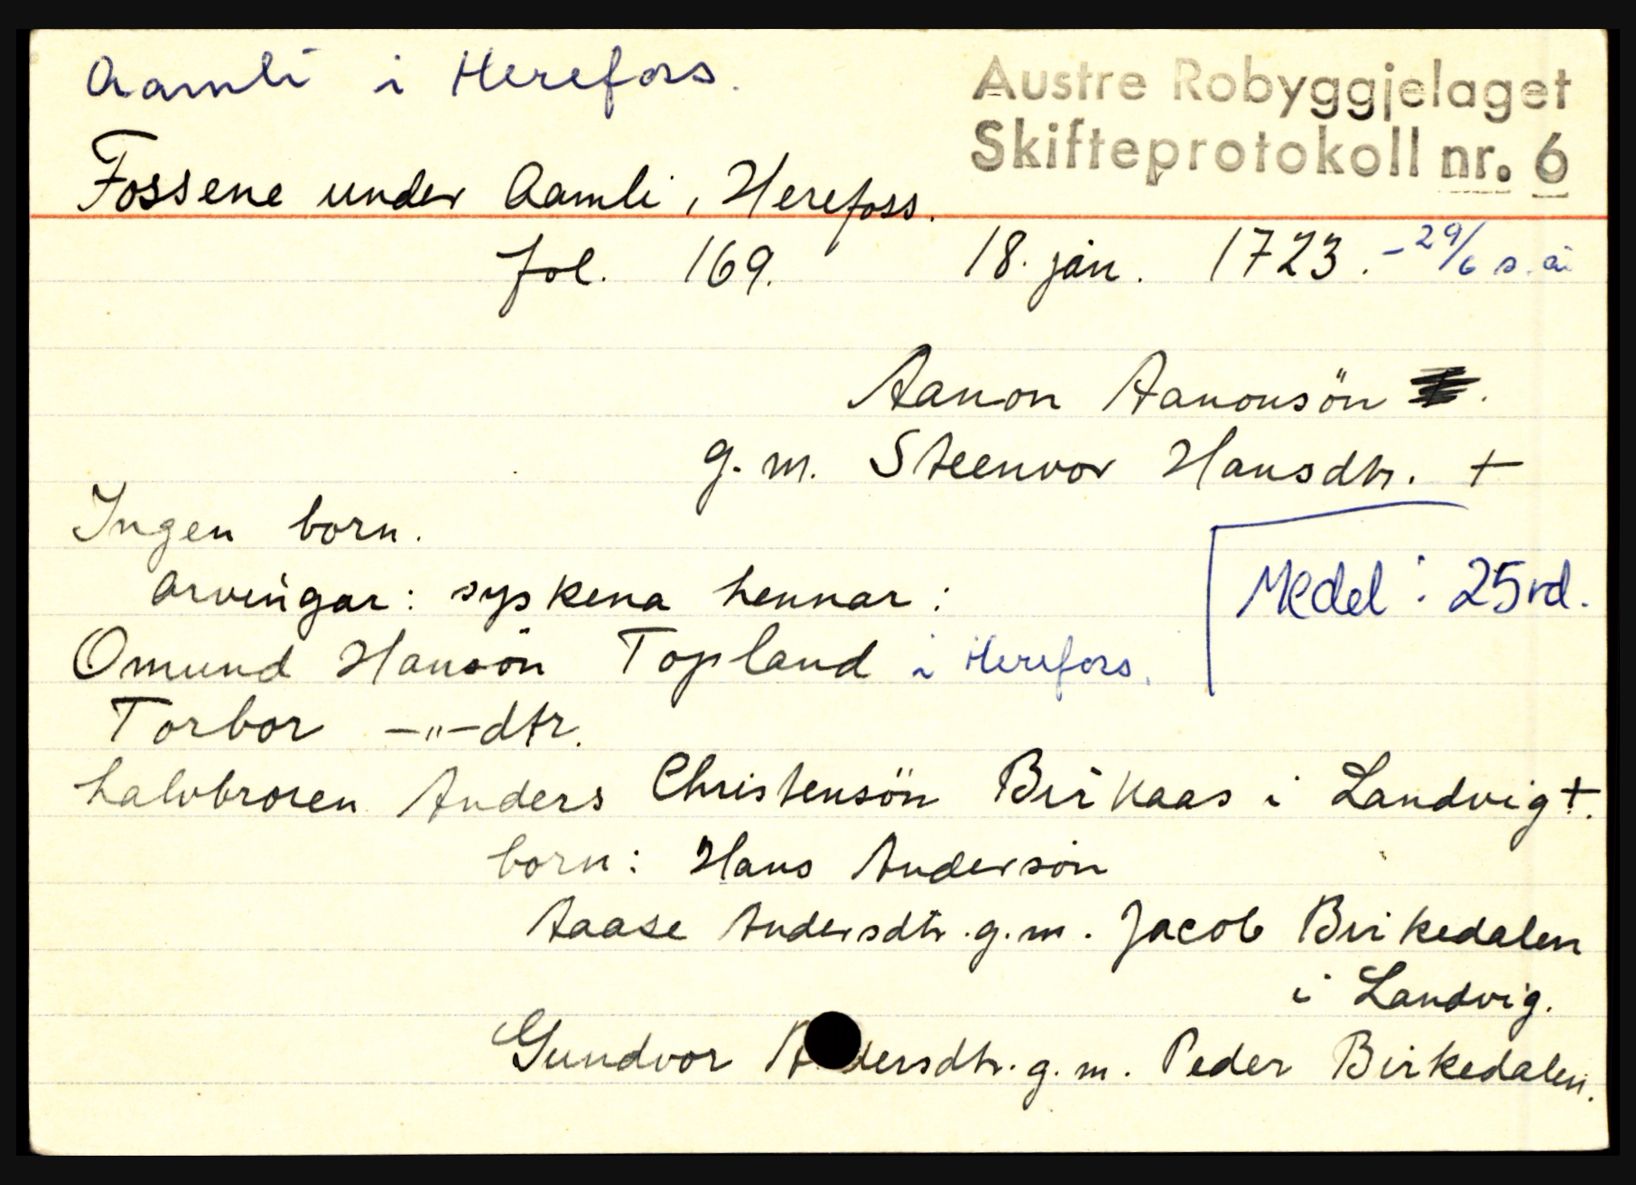 Aamli i Herefoss.
Austre Robyggjelaget
Skifteprotokoll nr. 6
Fossene under Aamli, Herefoss.
fol. 169. 18. jan. 1723. - 29/6 s. å
Aanon Aanonsön
g. m. Steenvor Hansdtr. +
Ingen born.
Medel : 25 rd.
Arvingar : syskena hennar :
Omund Hansön Topland i Herefoss.
Torbor -"- dtr.
halvbroren Anders Christensön Birkaas i Landvig +.
born : Hans Andersön
Aaase Andersdtr. g. m. Jacob Birkedalen
i Landvig.
Gundvor A dersdtr. g. m. Peder Birkedalen.